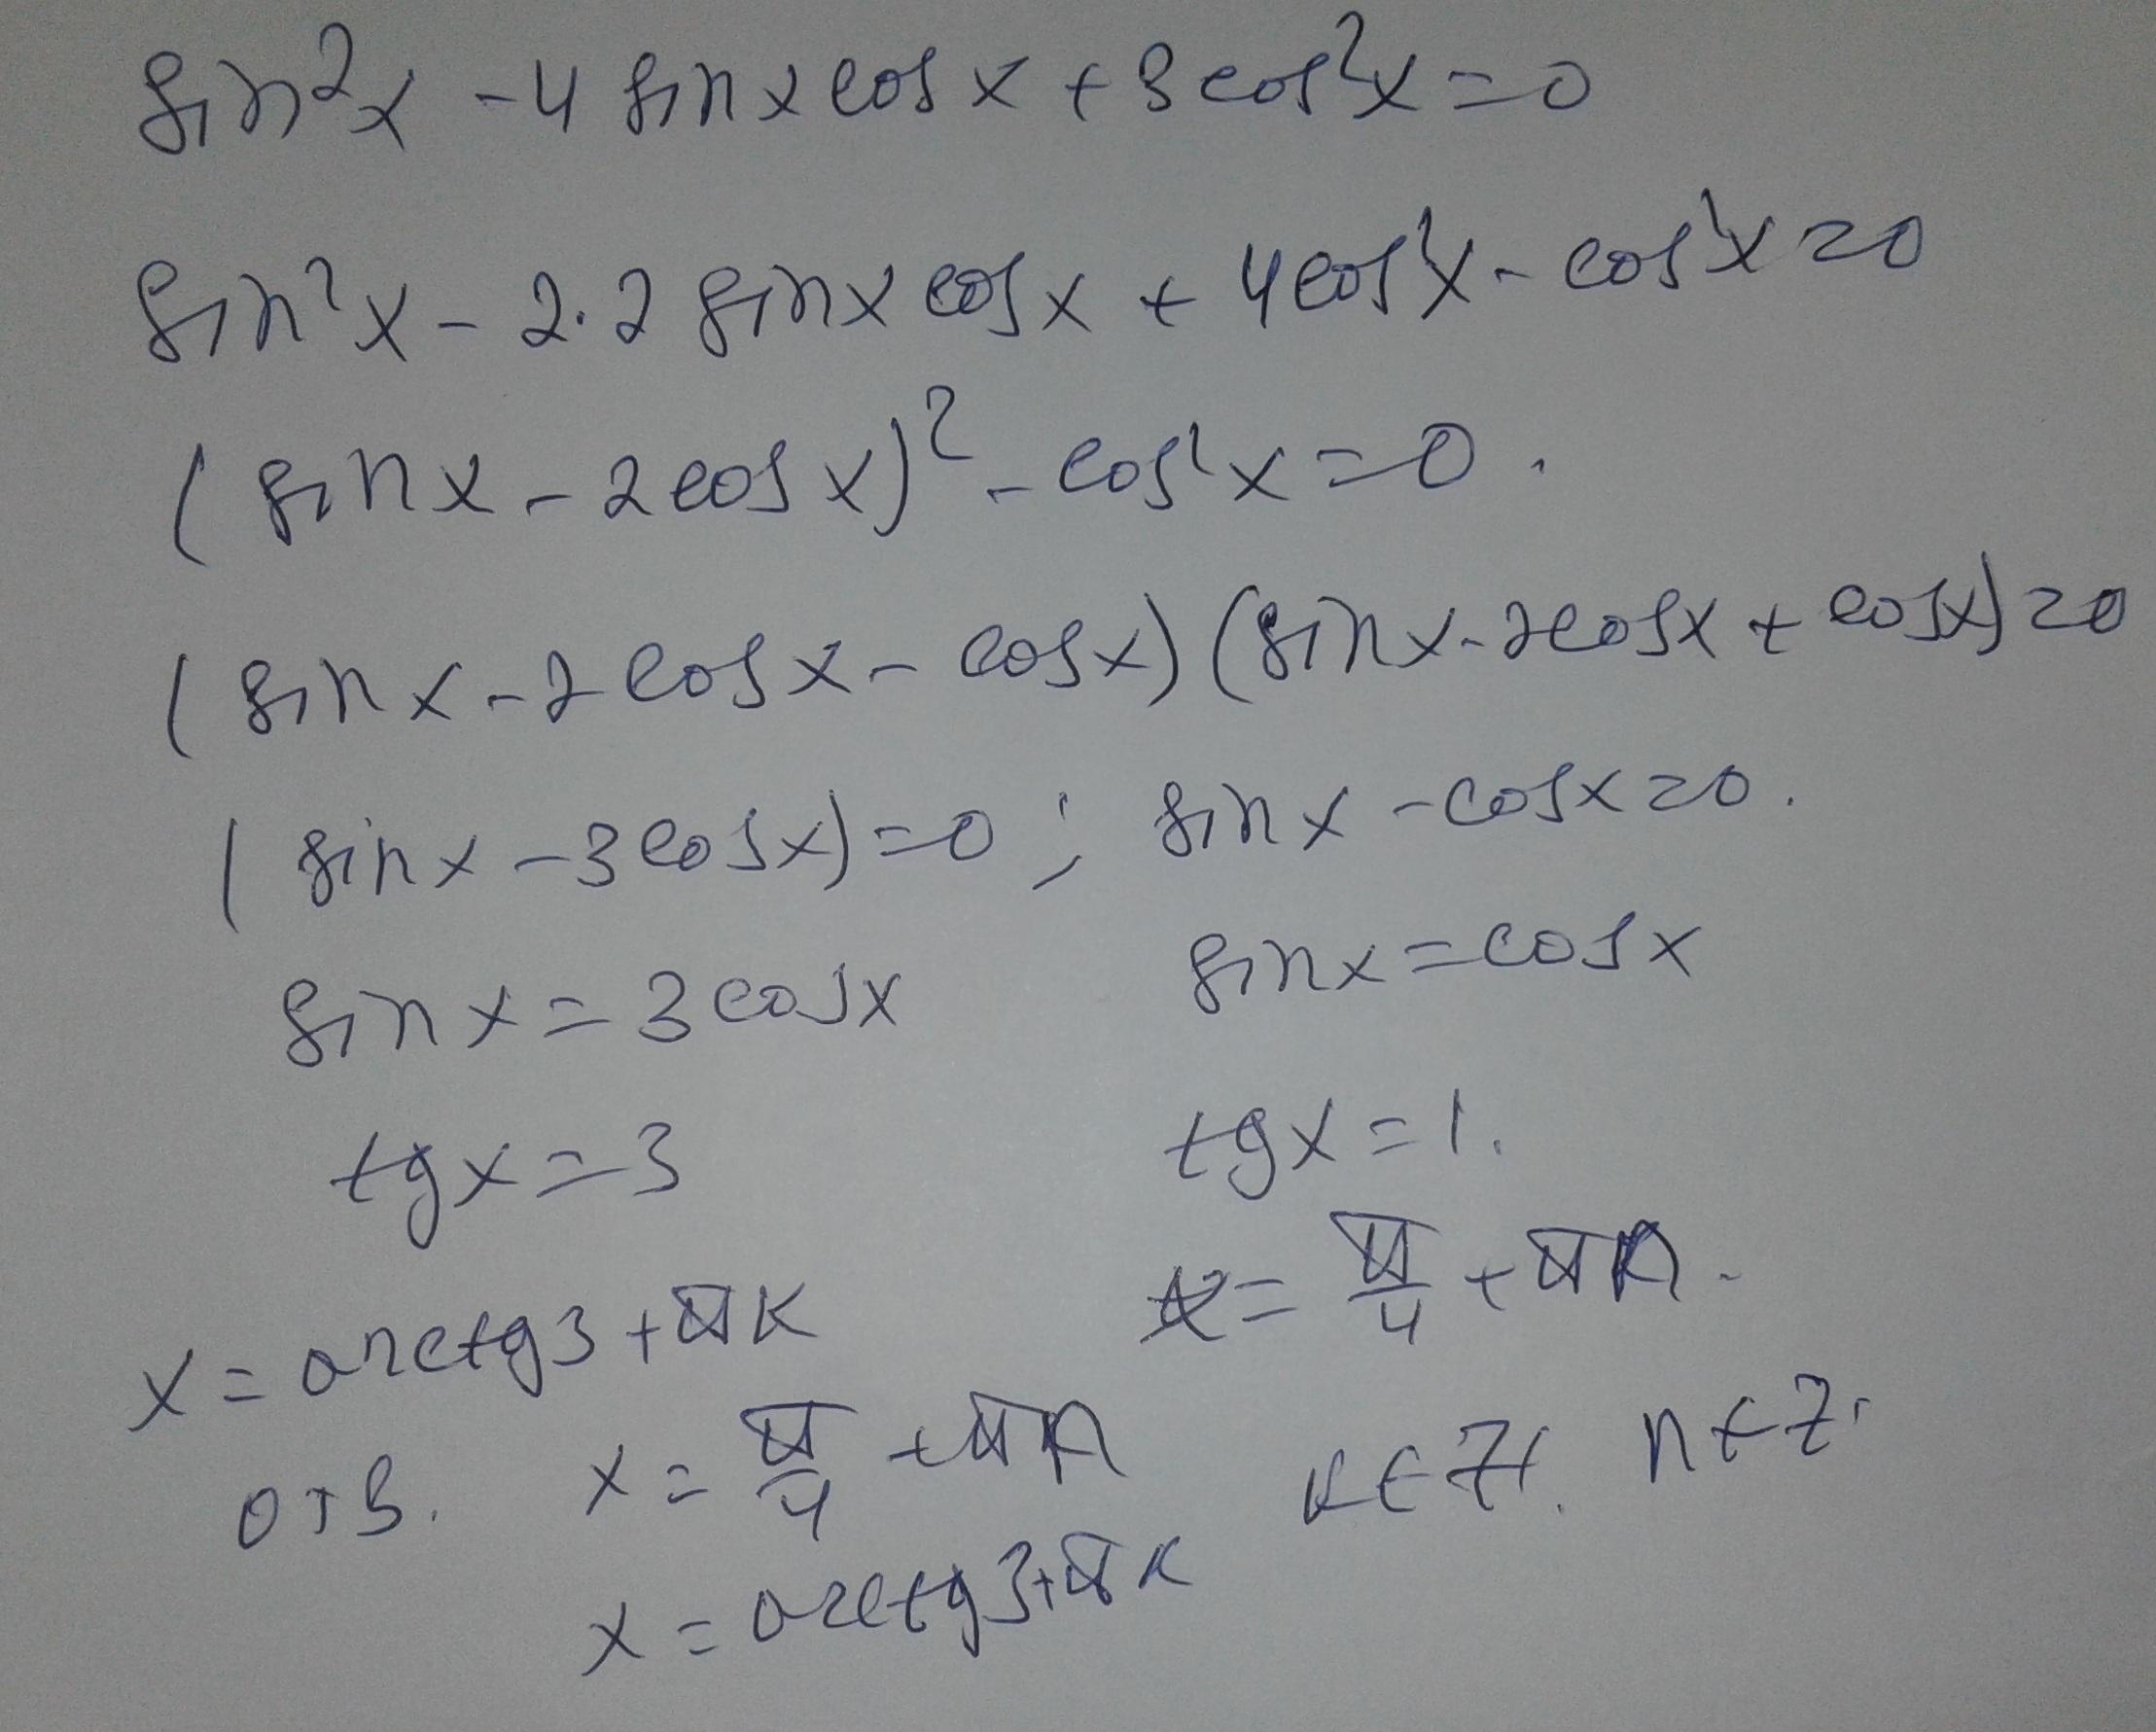 sin²x - 4 sinx cosx + 3cos²x = 0
sin²x - 2·2 sinx cosx + 4cos²x - cos²x = 0
(sinx - 2cosx)² - cos²x = 0.
(sinx - 2cosx - cosx)(sinx - 2cosx + cosx) = 0
(sinx - 3cosx) = 0; sinx - cosx = 0.
sinx = 3cosx sinx = cosx
tgx = 3 tgx = 1.
x = arctg3 + πk x = π/4 + πn.
отв. x = π/4 + πn k∈Z. n∈Z.
x = arctg3 + πk